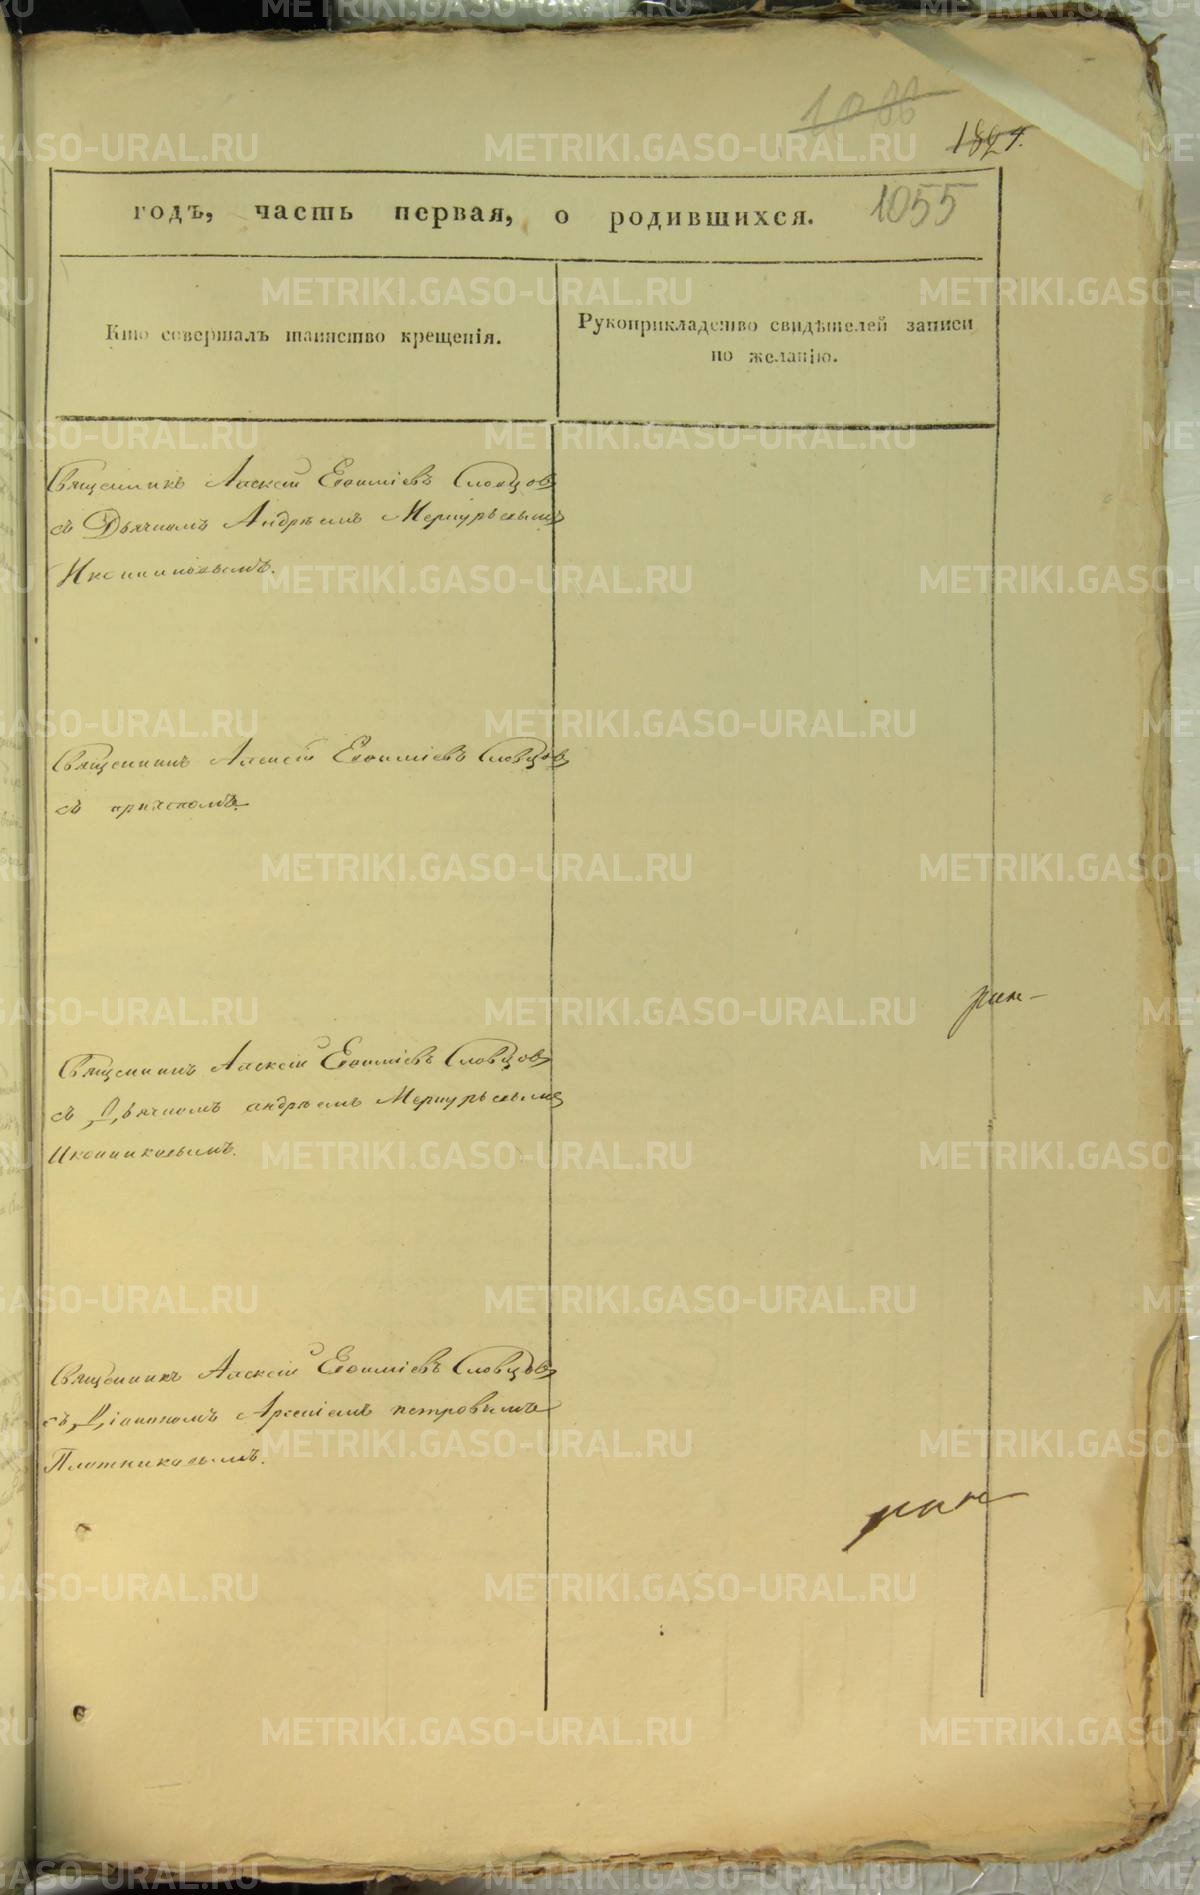 1824.
годъ, часть первая, о родившихся. 1055
Кто совершалъ таинство крещенія.
Рукоприкладство свидѣтелей записи
по желанію.
Священникъ Алексій Евоиміевъ Словцовъ
съ Дьячкомъ Андрѣемъ Меркурьевымъ
Иконниковымъ.
Священникъ Алексій Евоиміевъ Словцовъ
съ причетомъ.
Священникъ Алексій Евоиміевъ Словцовъ
съ Дьячкомъ андрѣемъ Меркурьевымъ
Иконниковымъ.
Священникъ Алексій Евоиміевъ Словцовъ
съ Діакономъ Арсеніемъ петровымъ
Плотниковымъ.
METRIKI.GASO-URAL.RU